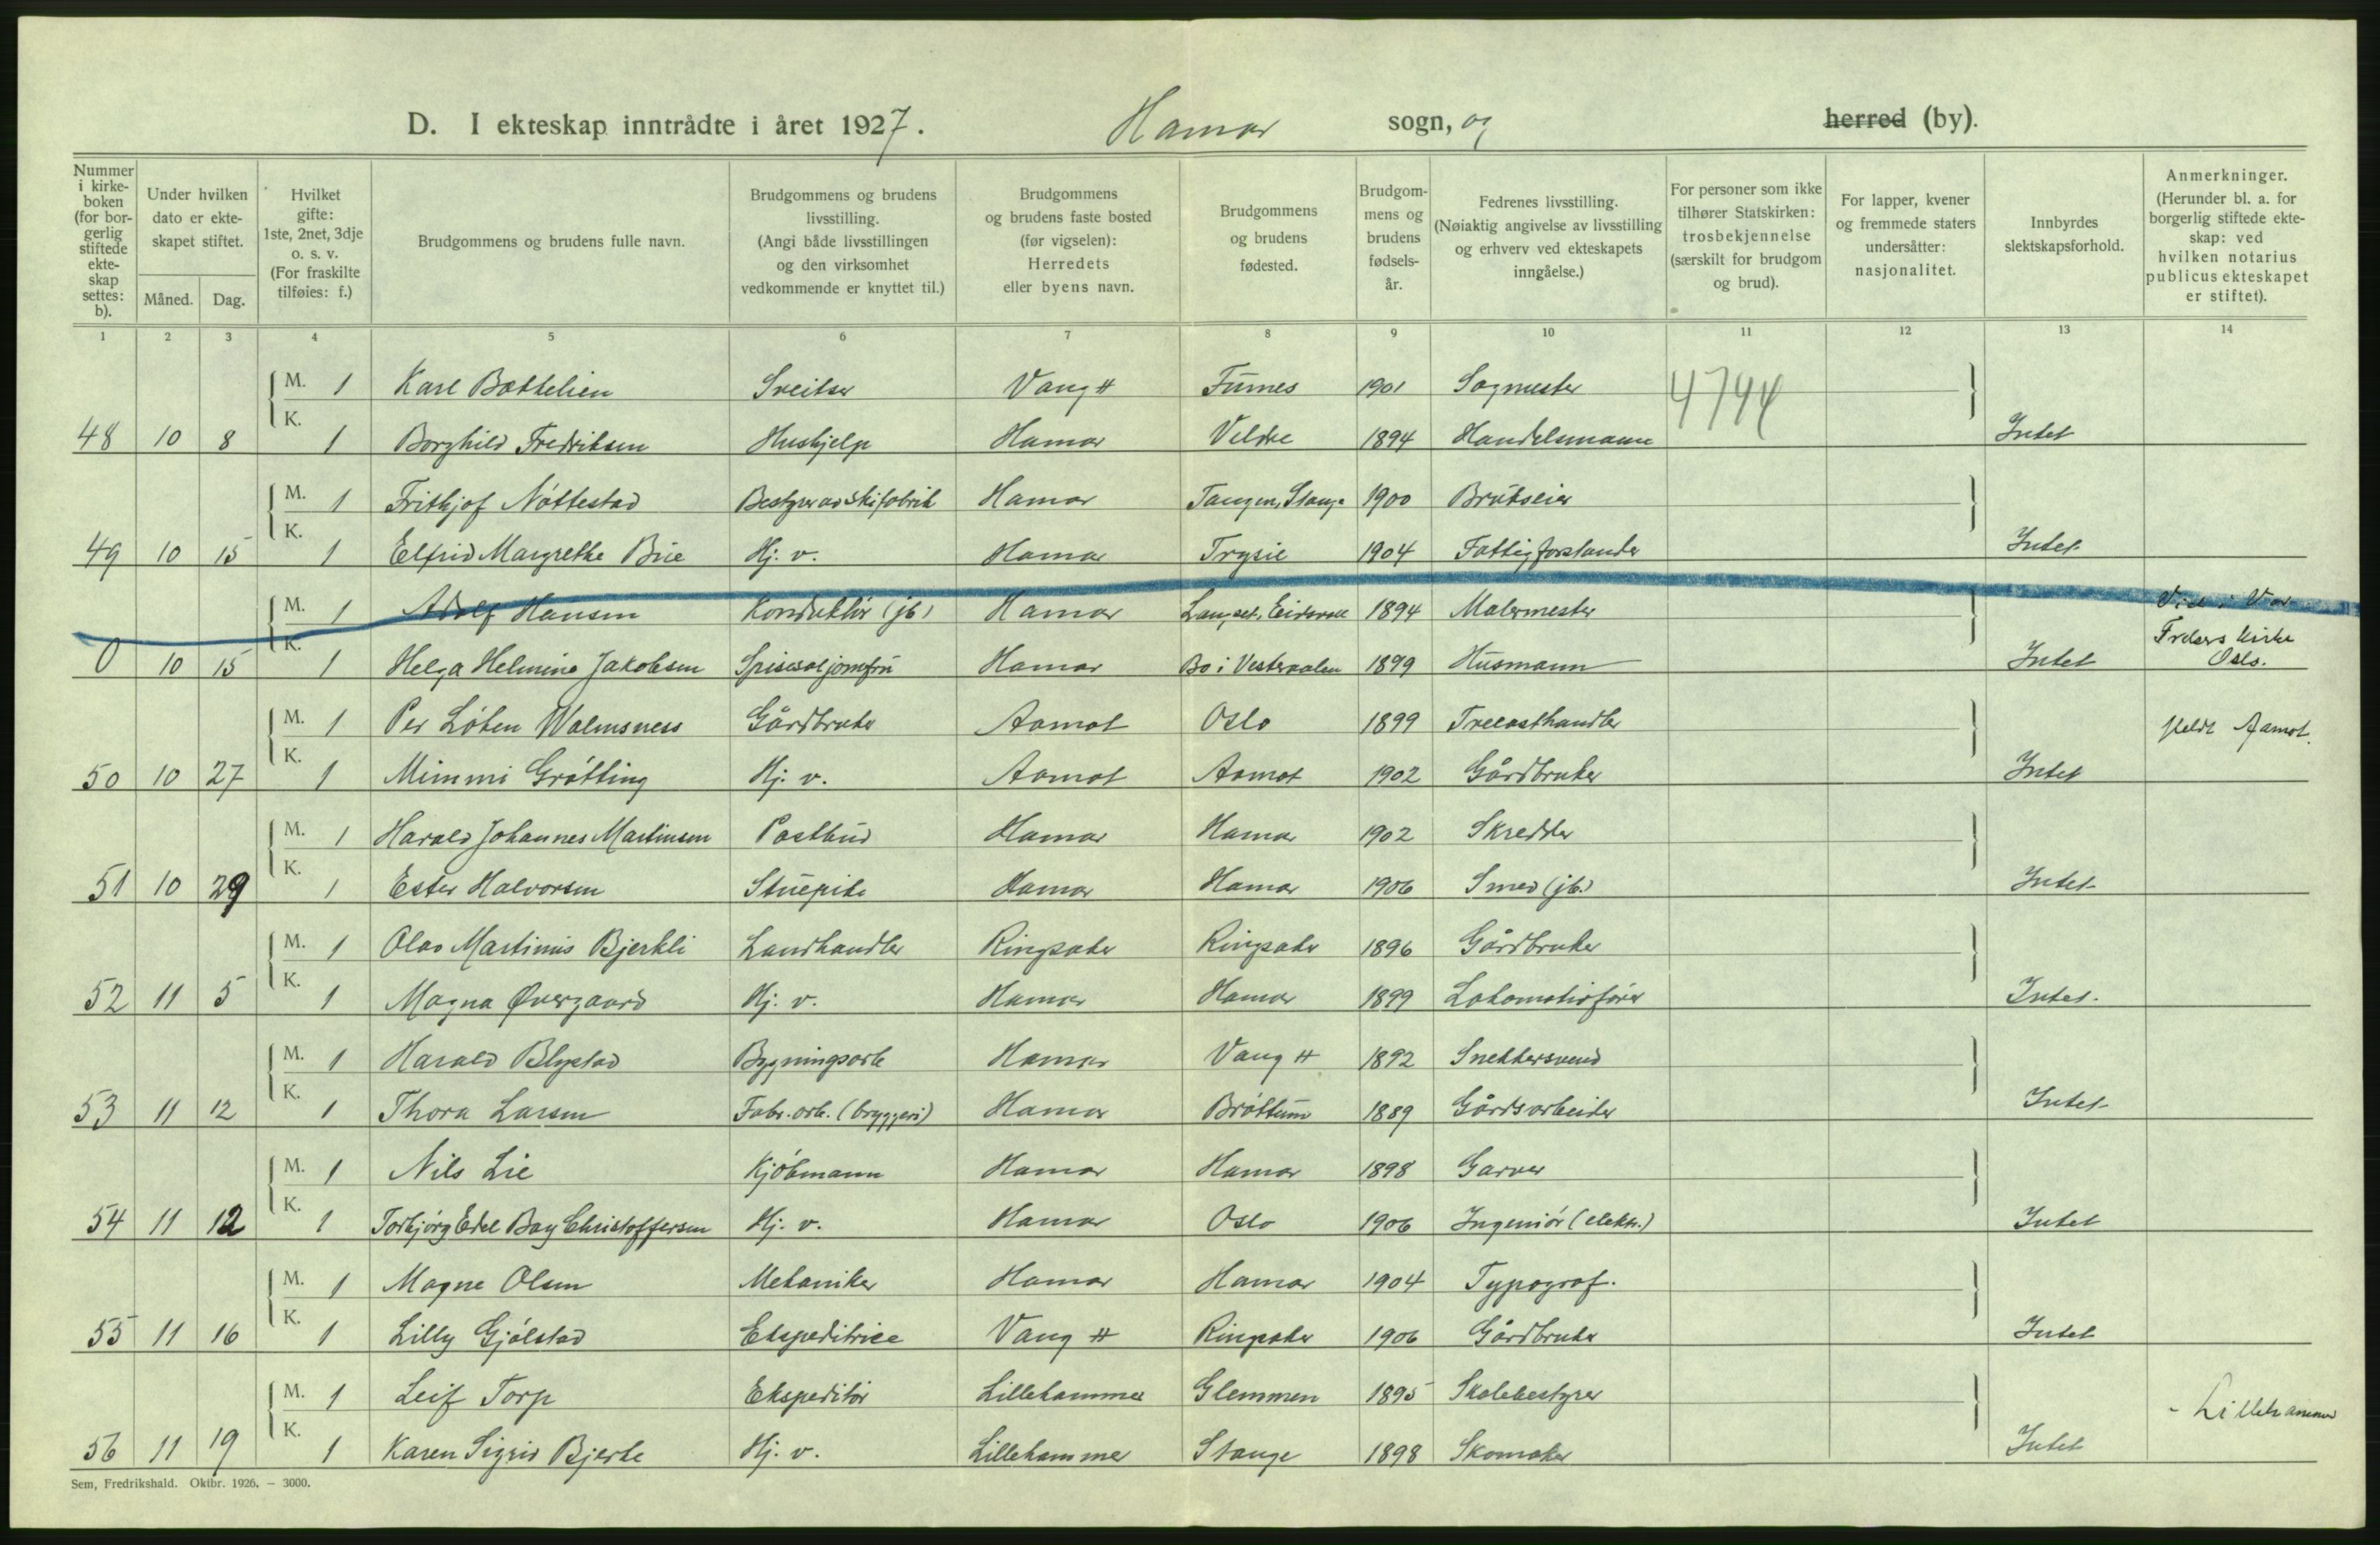 D. I ekteskap inntrådte i året 1927. Hamar sogn, og herred (by).
Nummer i kirkeboken (for borgerlig stiftede ekteskap settes: b).
Under hvilken dato er ekteskapet stiftet.
Måned. Dag.
Hvilket gifte: 1ste, 2net, 3dje o. s. v. (For fraskilte tilføies: f.)
Brudgommens og brudens fulle navn.
Brudgommens og brudens livsstilling. (Angi både livsstillingen og den virksomhet vedkommende er knyttet til.)
Brudgommens og brudens faste bosted (før vigselen): Herredets eller byens navn.
Brudgommens og brudens fødested.
Brudgommens og brudens fødselsår.
Fedrenes livsstilling. (Nøiaktig angivelse av livsstilling og erhverv ved ekteskapets inngåelse.)
For personer som ikke tilhører Statskirken: trosbekjennelse (særskilt for brudgom og brud).
For lapper, kvener og fremmede staters undersåtter: nasjonalitet.
Innbyrdes slektskapsforhold.
Anmerkninger. (Herunder bl. a. for borgerlig stiftede ekteskap: ved hvilken notarius publicus ekteskapet er stiftet).
1 2 3 4 5 6 7 8 9 10 11 12 13 14
M. 1 Karl Bættelien Sveitser Vang H Furnes 1901 Sagmester 4744
48 10 8 K. 1 Borghild Fredriksen Hushjelp Hamar Veldre 1894 Handelsmann Intet
M. 1 Frithjof Nøttestad Bestyrer av skifabrik Hamar Tangen, Stange 1900 Brukseier
49 10 15 K. 1 Elfrid Margrethe Brie Hj. v. Hamar Trysil 1904 Fattigforstander Intet
M. 1 Adolf Hansen Konduktør (jb) Hamar Langset, Eidsvoll 1894 Malermester Viet i Vor
0 10 15 K. 1 Helga Helmine Jakobsen Spisesaljomfru Hamar Bø i Vesteraalen 1899 Husmann Intet Frelsers Kirke Oslo.
M. 1 Per Løken Walmsness Gårdbruker Aamot Oslo 1899 Trelasthandler Meldt Aamot.
50 10 27 K. 1 Mimmi Grøtting Hj. v. Aamot Aamot 1902 Gårdbruker Intet
M. 1 Harald Johannes Martinsen Postbud Hamar Hamar 1902 Skredder
51 10 29 K. 1 Ester Halvorsen Stuepike Hamar Hamar 1906 Smed (jb.) Intet
M. 1 Olav Martinus Bjerkli Landhandler Ringsaker Ringsaker 1896 Gårdbruker
52 11 5 K. 1 Magna Øvergaard Hj. v. Hamar Hamar 1899 Lokomotivfører Intet.
M. 1 Harald Blystad Bygningsarb Hamar Vang H 1892 Snekkersvend
53 11 12 K. 1 Thora Larsen Fabr. arb. (bryggeri) Hamar Brøttum 1889 Gårdsarbeider Intet
M. 1 Nils Lie Kjøbmann Hamar Hamar 1898 Garver
54 11 12 K. 1 Torbjørg Edel Bay Christoffersen Hj. v. Hamar Oslo 1906 Ingeniør (elektr.) Intet
M. 1 Magne Olsen Mekaniker Hamar Hamar 1904 Typograf.
55 11 16 K. 1 Lilly Gjølstad Ekspeditrice Vang H Ringsaker 1906 Gårdbruker Intet
M. 1 Leif Torp Ekspeditør Lillehammer Glemmen 1895 Skolebestyrer - Lillehammer
56 11 19 K. 1 Karen Sigrid Bjerke Hj. v. Lillehammer Stange 1898 Skomaker Intet
Sem, Fredrikshald. Oktbr. 1926. – 3000.